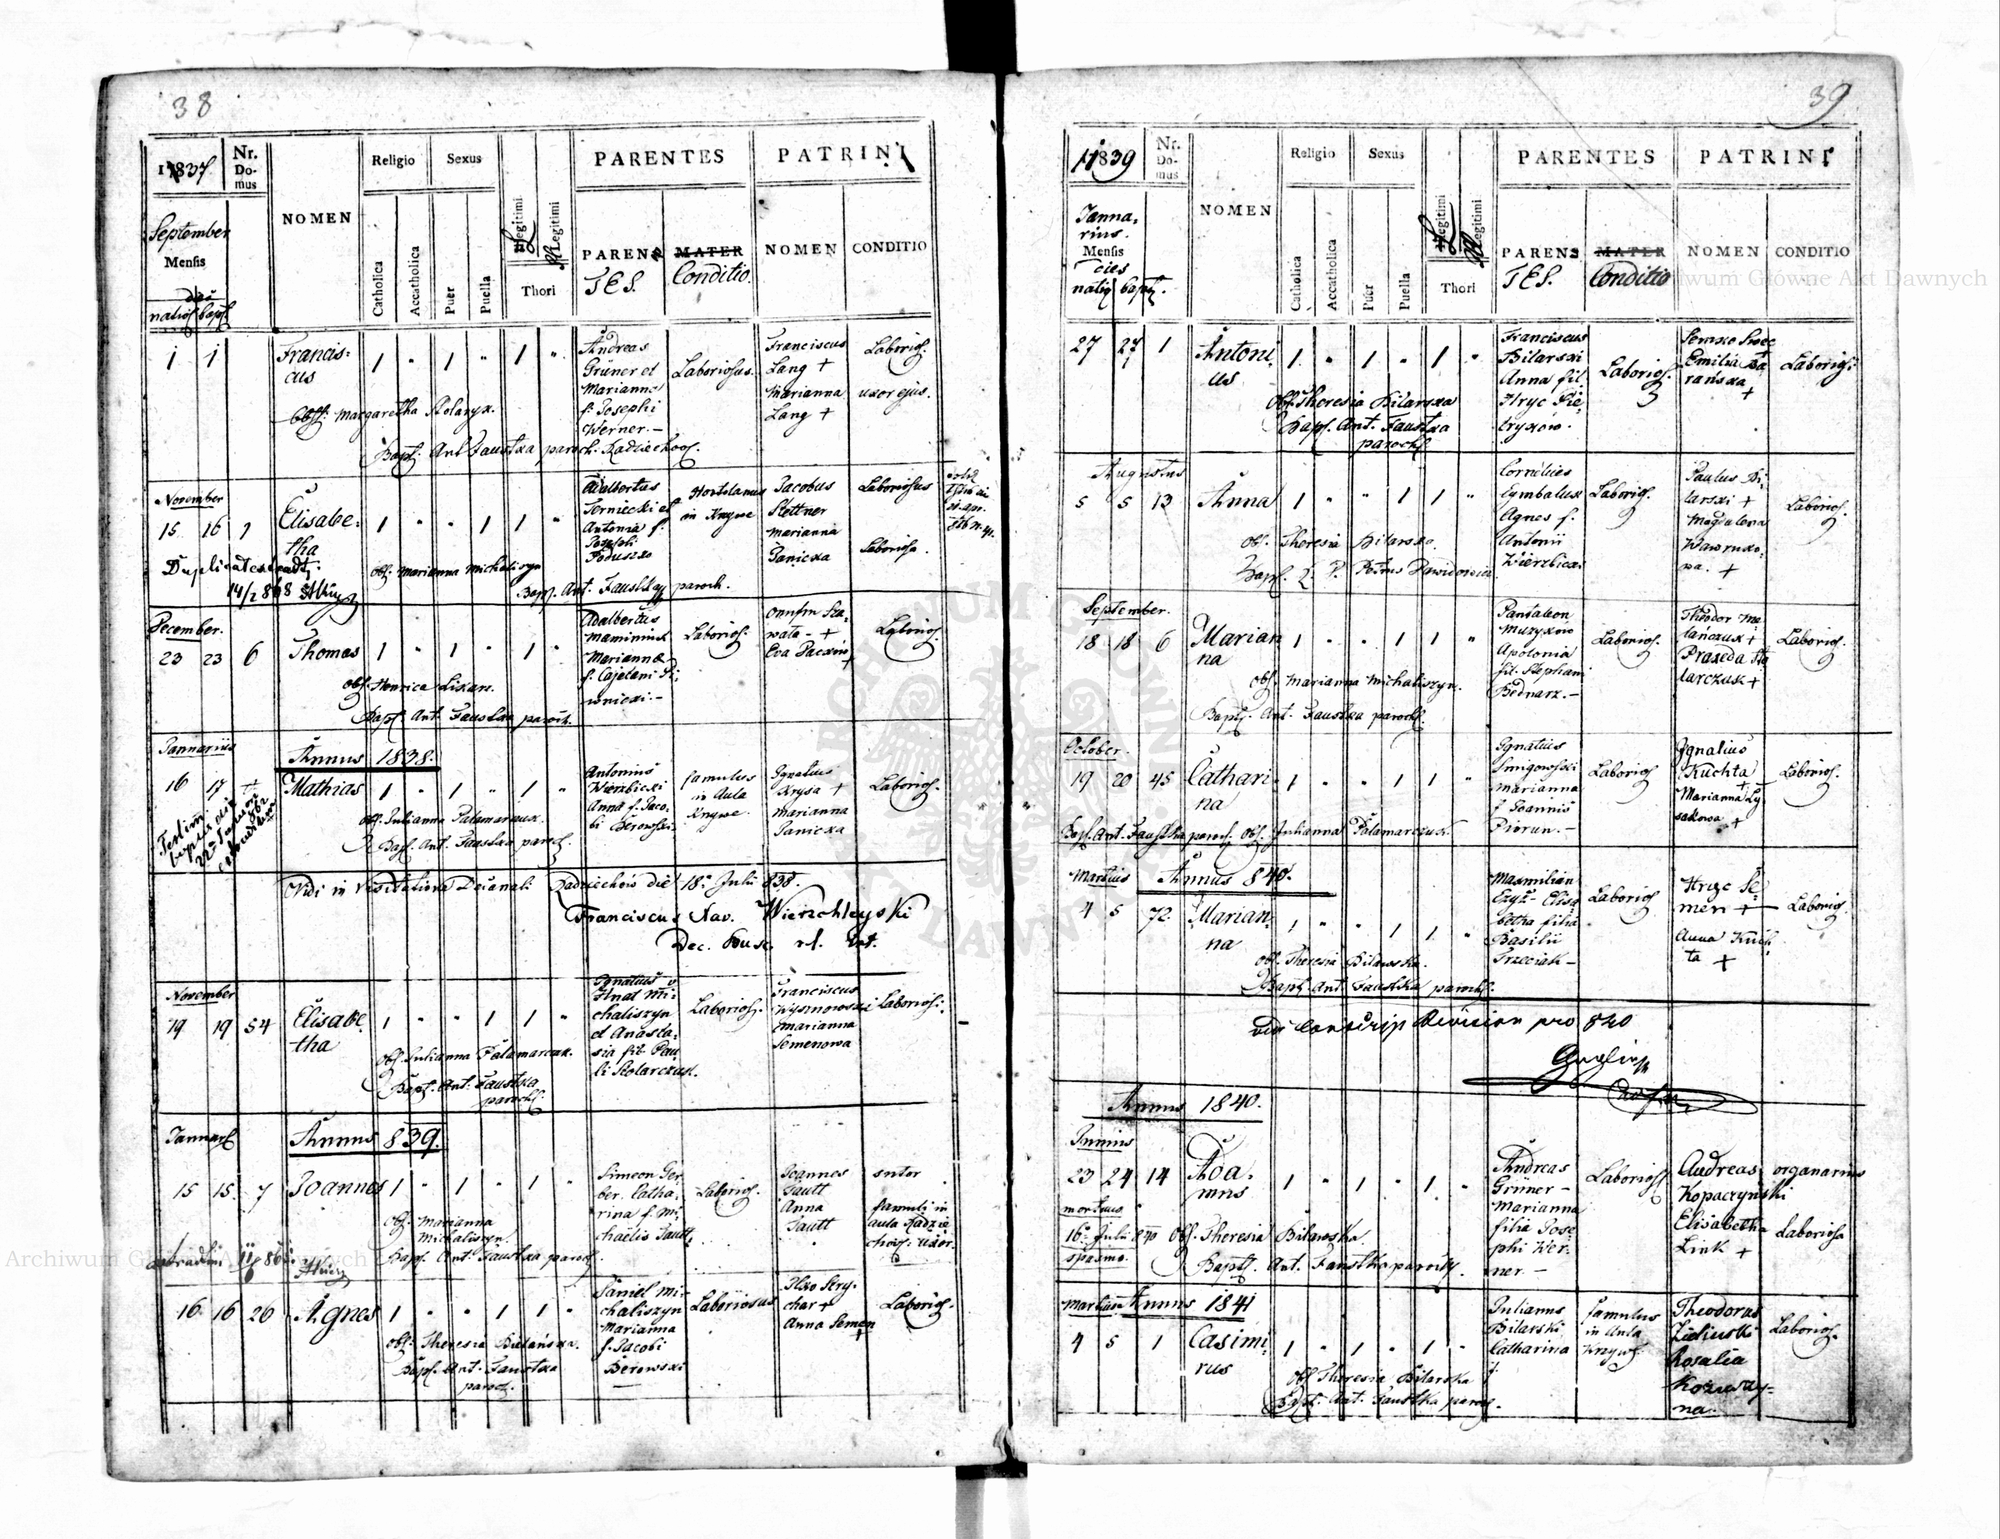 38
1837
Nr. Domus
NOMEN
Religio
Sexus
PARENTES
PATRINI
September
Mensis
dies
natiõ bapt.
Catholica
Accatholica
Puer
Puella
Legitimi
Illegitimi
Thori
PARENTES.
MATER
Conditio.
NOMEN
CONDITIO
1 1 Franciscus 1 " 1 " 1 "
Andreas
Grüner et
Marianna
f. Josephi
Werner.—
Laboriosus.
Franciscus
Lang +
Marianna
Lang +
Laborios.
uxor ejus.
Obst. Margaretha Stolaryx.
Bapt. Ant. Faustka paroch. Radziechov.
November
15 16 7 Elisabetha 1 " " 1 1 "
Adalbertus
Terniecki et
Antonia f.
Josephi
Poduszko
Hortulanus
in Krzywe
Jacobus
Stettner
Marianna
Panicka
Laboriosus
Laboriosa.
Duplicates
14/2 868
Obst. Marianna Michaliszyn
Bapt. Ant. Faustka paroch.
December.
23 23 6 Thomas 1 " 1 " 1 "
Adalbertus
Marianna
f. Cajetani
Laborios.
Eva
Laborios.
Obst. Henrica Liskan.
Bapt. Ant. Faustka paroch.
Januarius
Annus 1838.
16 17 + Mathias 1 " 1 " 1 "
Antonius
Wierzbicki
Anna f. Jacobi
Berowski.
famulus
in Aula
Krzywe.
Ignatius
Krysa +
Marianna
Panicka
Laborios.
Obst. Julianna Palamarczuk.
Bapt. Ant. Faustka paroch.
Vidi in Visitatione Decanali Radziechów die 18. Julii 838.
Franciscus Xav. Wierzchleyski
Dec. Busc.
November
19 19 54 Elisabetha 1 " " 1 1 "
Ignatius v.
Hnat Michaliszyn
et Anastasia
fil. Pauli
Stolarczuk.
Laborios.
Franciscus
Wysznowski
Marianna
Semenowa
Laborios.
Obst. Julianna Palamarczuk.
Bapt. Ant. Faustka
paroch.
Januar.
Annus 839.
15 15 7 Joannes 1 " 1 " 1 "
Simeon Gerber.
Catharina
f. Michaelis
Tautt.
Laborios.
Joannes
Tautt
Anna
Tautt
sutor
famuli in
aula Radziechov.
uxor.
Obst. Marianna
Michaliszyn.
Bapt. Ant. Faustka paroch.
16 16 26 Agnes 1 " " 1 1 "
Daniel Michaliszyn
Marianna
f. Jacobi
Berowski
Laboriosus
Ilko Strychar +
Anna Semen
+
Laborios.
Obst. Theresia Bilarska.
Bapt. Ant. Faustka
paroch.
39
1839
Nr. Domus
NOMEN
Religio
Sexus
PARENTES
PATRINI
Januarius.
Mensis
dies
natiõ bapt.
Catholica
Accatholica
Puer
Puella
Legitimi
Illegitimi
Thori
PARENTES.
MATER
Conditio
NOMEN
CONDITIO
27 27 1 Antonius 1 " 1 " 1 "
Franciscus
Bilarski
Anna fil.
Hryc Pietryxow.
Laborios.
Semko Swec
Emilia Baranska
+
Laborios.
Obst. Theresia Bilarska
Bapt. Ant. Faustka
paroch.
Augustus
5 5 13 Anna 1 " " 1 1 "
Cornelius
Cymbalux
Agnes f.
Antonii
Wierzbicki
Laborios.
Paulus Bilarski +
Magdalena
+
Laborios.
Obst. Theresia Bilarska.
Bapt. Petrus Dawidowicz
September.
18 18 6 Marianna 1 " " 1 1 "
Pantaleon
Muzykow
Apolonia
fil. Stephani
Bednarz.—
Laborios.
Theodor Melanczuk +
Praxeda Stolarczuk +
Laborios.
Obst. Marianna Michaliszyn.
Bapt. Ant. Faustka paroch.
October.
19 20 45 Catharina 1 " " 1 1 "
Ignatius
Smigowski
Marianna
f. Joannis
Piorun.—
Laborios.
Ignatius
Kuchta
Marianna Lysakowa +
Laborios.
Bapt. Ant. Faustka paroch. Obst. Julianna Palamarczuk.
Martius
Annus 840.
4 5 72 Marianna 1 " " 1 1 "
Maxmilian
Czyz— Elisabetha
filia
Basilii
Trzeciak—
Laborios.
Hryc Semen +
Anna Kuchta +
Laborios.
Obst. Theresia Bilawska.
Bapt. Ant. Faustka paroch.
vidi Conscrip Revision pro 840
Annus 1840.
Junius
23 24 14 Adamus 1 " 1 " 1 "
Andreas
Grüner—
Marianna
filia Josephi
Werner.—
Laborios.
Andreas
Kopaczyński
Elisabetha
Link +
organarius
Laboriosa
mortuus
16. Julii 840 Obst. Theresia Bilawska.
spasmo.
Bapt. Ant. Faustka paroch.
Martius Annus 1841
4 5 1 Casimirus 1 " 1 " 1 "
Julianus
Bilarski
Catharina
f.
famulus
in Aula
Krzywe.
Theodorus
Rosalia
Laborios.
Obst. Theresia Bilarska
Bapt. Ant. Faustka paroch.
Archiwum Główne Akt Dawnych
ARCHIWUM GŁÓWNE AKT DAWNYCH
Archiwum Główne Akt Dawnych